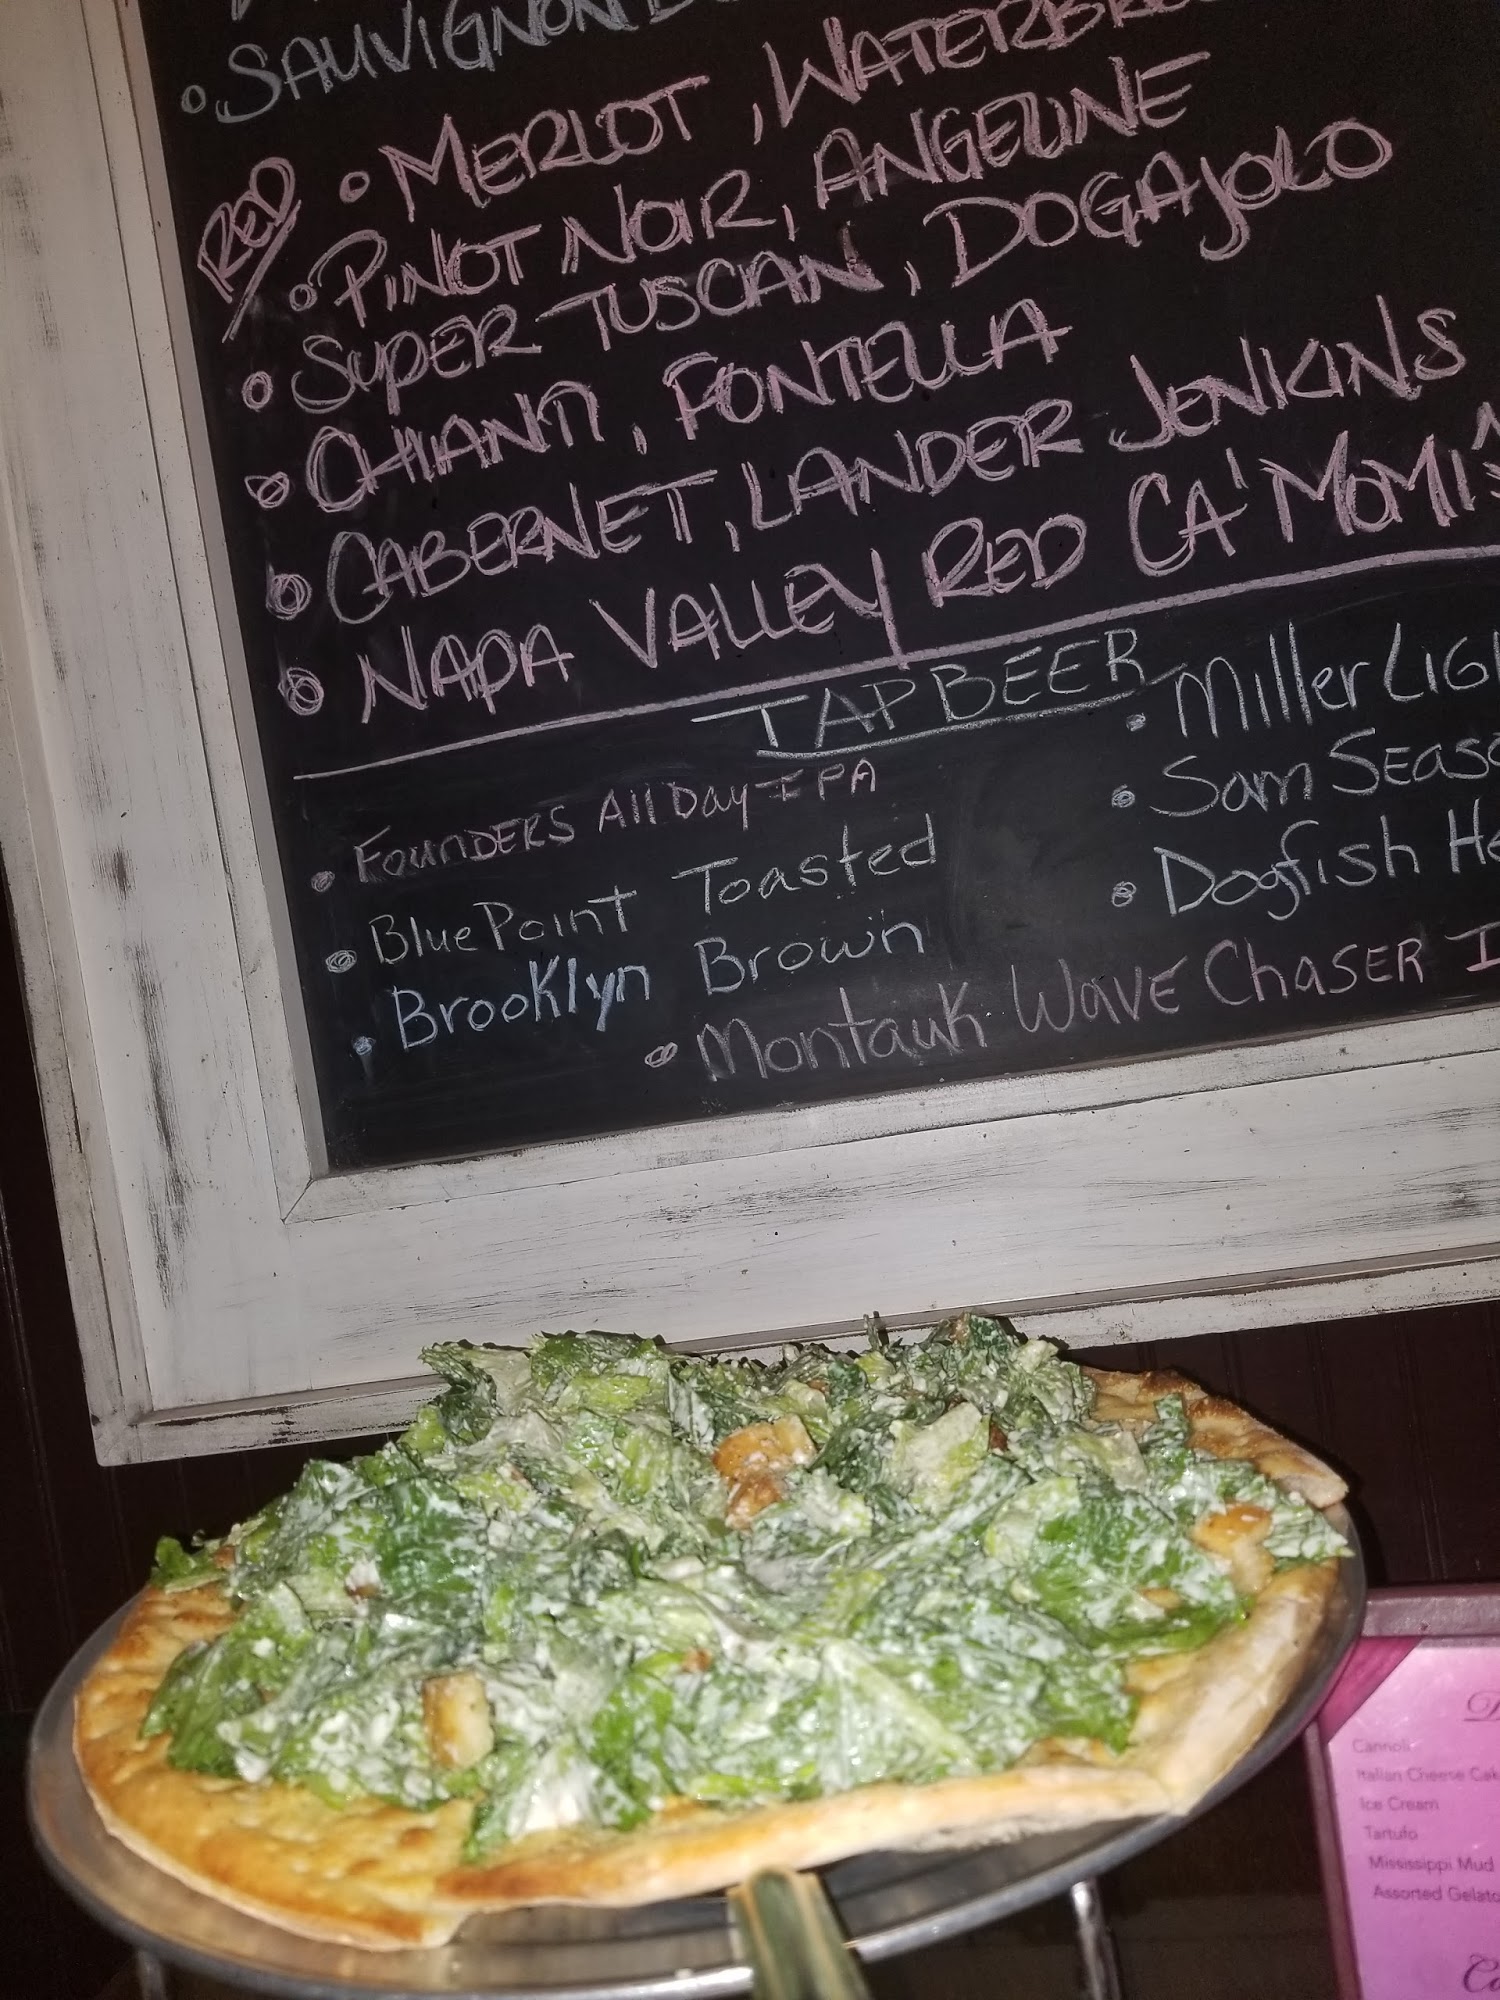 SAUVIGNON
RED
MERLOT, WATERBR
PINOT NOIR, ANGELINE
SUPER TUSCAN, DOGAJOLO
CHIANTI, FONTELLA
CABERNET, LANDER JENKINS
NAPA VALLEY RED CA' MOMI
TAP BEER
FOUNDERS All Day IPA
Blue Point Toasted
Brooklyn Brown
Miller LIG
Sam SEASO
Dogfish He
Montauk WAVE ChASER I
Cannoli
Italian Cheese Cak
Ice Cream
Tartufo
Mississippi Mud
Assorted Gelato